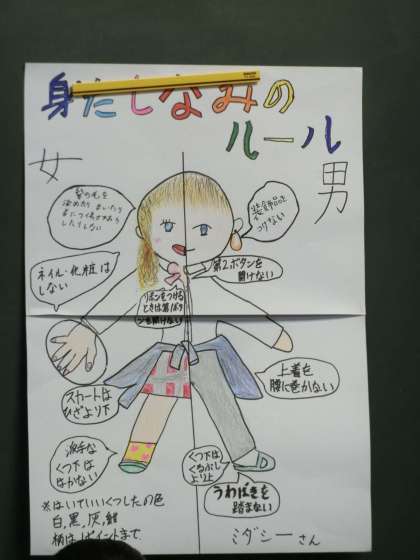 身だしなみの
ルール
女
男
髪の毛を
染めたり まいたり
またつけ毛やあみこみ
したりしない
装飾品を
つけない
ネイル・化粧は
しない
第2ボタンを
開けない
リボンをつける
ときは第1ボタ
ンを開けない
スカートは
ひざより下
上着を
腰に巻かない
派手な
くつ下は
はかない
くつ下は
くるぶし
より上
うわばきを
踏まない
※はいていいくつしたの色
白,黒,灰,紺
柄は1ポイントまで
ミダシーさん